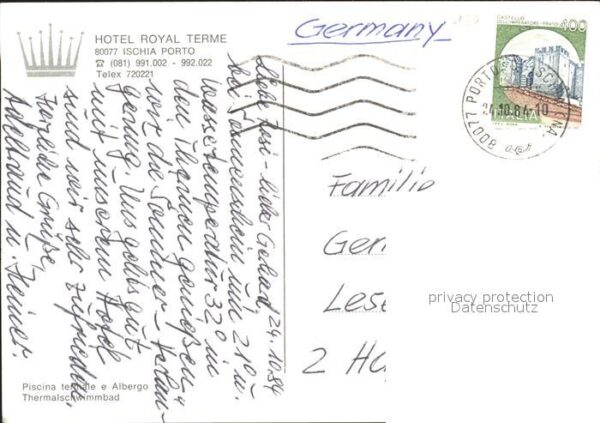 HOTEL ROYAL TERME
80077 ISCHIA PORTO
☎ (081) 991.002 - 992.022
Telex 720221
Germany
CASTELLO
DELL'IMPERATORE - PRATO
400
80077 PORTO D'ISCHIA
24.10.84-10
24.10.84
Liebe Susi - lieber Gerhard,
bei Sonnenschein und 21° u.
Wassertemperatur 32° in
den Thermen genießen
wir die Sonne
genug. Uns geht's gut
mit unserem Hotel
sind wir sehr zufrieden.
Herzliche Grüße
u. Heiner.
Familie
Ger
Lese
2 H
privacy protection
Datenschutz
Piscina termale e Albergo
Thermalschwimmbad